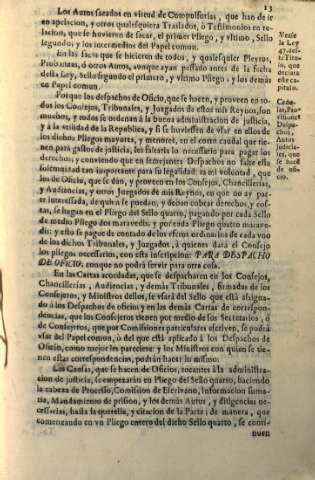 13
Los Autos sacados en virtud de Compulsorias, que han de ir
en apelacion, y otros qualesquiera Traslados, ò Testimonios en re-
lacion, que se huvieren de sacar, el primer Pliego, y vltimo, Sello
segundo; y los intermedios del Papel comun.
En las sacas que se hizieren de todos, y qualesquier Pleytos,
Probanzas, ò otros Autos, aunque ayan passado antes de la fecha
desta Ley, Sello segundo el primero, y vltimo Pliego; y los demàs
en Papel comun.
Porque los despachos de Oficio, que se hazen, y proveen en to-
dos los Consejos, Tribunales, y Juzgados de estos mis Reynos, son
muchos, y todos se ordenan à la buena administracion de justicia,
y à la vtilidad de la Republica, y si se huviessen de vsar en ellos de
los dichos Pliegos mayores, y menores, en el corto caudal que tie-
nen para gastos de justicia, les faltaria lo necessario para pagar los
derechos; y conviendo que en semejantes Despachos no falte esta
solemnidad tan importante para su legalidad: es mi voluntad, que
los de Oficio, que se dàn, y proveen en los Consejos, Chancillerias,
y Audiencias, y otros Juzgados de mis Reynos, en que no ay par-
te interessada, de quien se puedan, y deban cobrar derechos, y cos-
tas, se hagan en el Pliego del Sello quarto, pagando por cada Sello
de medio Pliego dos maravedis, y por cada Pliego quatro marave-
dis: y esto se pague de contado de los efectos ordinarios de cada vno
de los dichos Tribunales, y Juzgados, à quienes darà el Consejo
los pliegos necessarios, con esta inscripcion: PARA DESPACHO
DE OFICIO, conque no podrà servir para otra cosa.
En las Cartas acordadas, que se despacharen en los Consejos,
Chancillerias, Audiencias, y demàs Tribunales, firmadas de los
Consejeros, y Ministros dellos, se vsarà del Sello que està assigna-
do à los Despachos de oficio; y en las demàs Cartas de correspon-
dencias, que los Consejeros tienen por medio de sus Secretarios, ò
de Consejeros, que por Comissiones particulares escriven, se podrà
vsar del Papel comun, ò del que està aplicado à los Despachos de
Oficio, como mejor les pareciere: y los Ministros con quien se tie-
nen estas correspondencias, podràn hazer lo mismo.
Las Causas, que se hacen de Oficios, tocantes à la administra-
cion de justicia, se empezaràn en Pliego del Sello quarto, haciendo
la cabeza de Processo, Comission de Escrivano, Informacion suma-
ria, Mandamiento de prision, y los demàs Autos, y diligencias ne-
cessarias, hasta la querella, y citacion de la Parte; de manera, que
comenzando en vn Pliego entero del dicho Sello quarto, se conti-
nuen
Vease
la Ley
47.
deste Titu-
lo, que
declara
este ca-
pitulo.
Cedu-
las, Pro-
visiones
Despa-
chos,
Autos
judicia-
les, que
se hazē
de ofi-
cio.